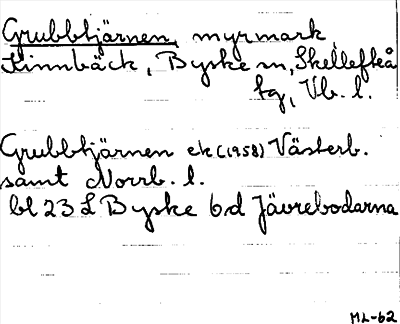 Grubbtjärnen, myrmark,
Kinnbäck, Byske sn, Skellefteå
tg, Vb. l.
Grubbtjärnen ek (1958) Västerb.
samt Norrb. l.
bl 23 L Byske 6d Jävrebodarna
ML-62